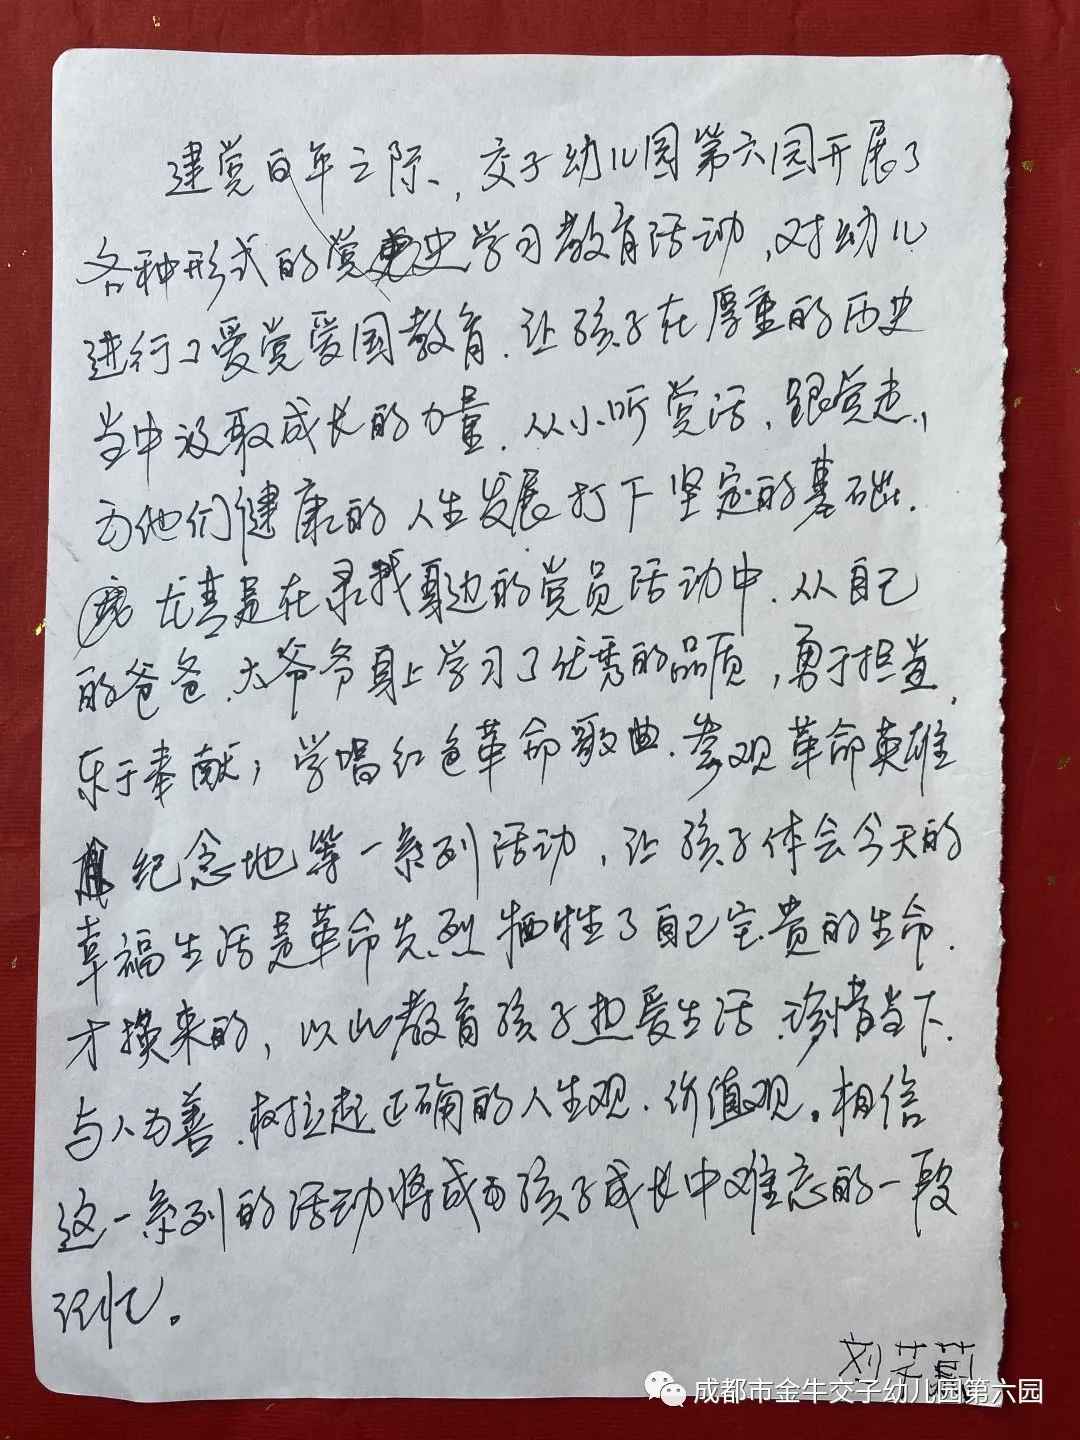 建党百年之际、,交子幼儿园第六园开展了
各种形式的党史学习教育活动,对幼儿
进行了爱党爱国教育.让孩子在厚重的历史
当中汲取成长的力量.从小听党话、跟党走,
为他们健康的人生发展打下坚定的基础.
尤其是在录我身边的党员活动中.从自己
的爸爸、大爷爷身上学习了优秀的品质,勇于担当、
乐于奉献;学唱红色革命歌曲.参观革命英雄
纪念地等一系列活动,让孩子体会今天的
幸福生活是革命先烈牺牲了自己宝贵的生命.
才换来的,以此教育孩子热爱生活.珍惜当下.
与人为善.树立起正确的人生观.价值观。相信
这一系列的活动将成为孩子成长中难忘的一段
记忆。
刘艾
成都市金牛交子幼儿园第六园